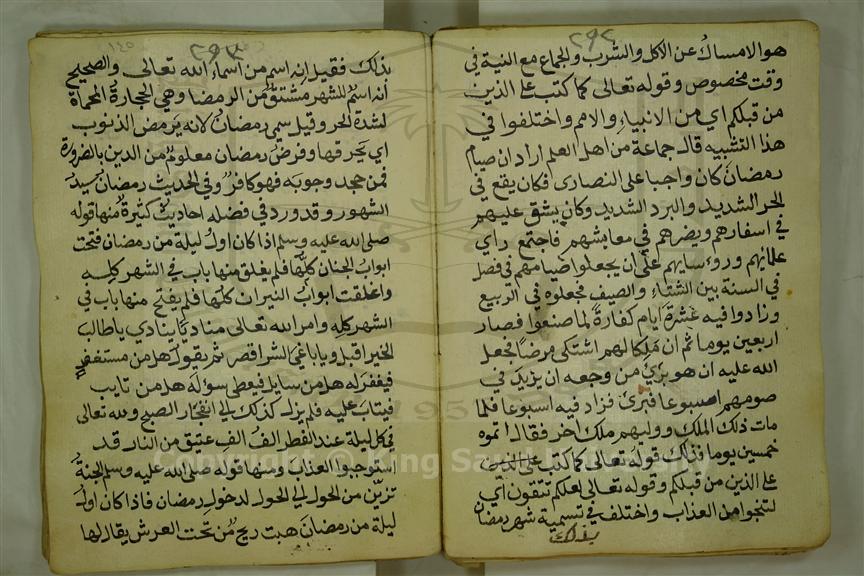 هو الامساك عن الاكل والشرب والجماع مع النية في
وقت مخصوص وقوله تعالى كما كتب على الذين
من قبلكم اي من الانبياء والامم واختلفوا في
هذا التشبيه قال جماعة من اهل العلم اراد ان صيام
رمضان كان واجبا على النصارى فكان يقع في
الحر الشديد والبرد الشديد وكان يشق عليهم
في اسفارهم ويضرهم في معايشهم فاجتمع راي
علمائهم وروسايهم على ان يجعلوا صيامهم في فصل
في السنة بين الشتاء والصيف فجعلوه في الربيع
وزادوا فيه عشرة ايام كفارة لما صنعوا فصار
اربعين يوما ثم ان ملكا لهم اشتكى مرضا فجعل
الله عليه ان هو برئ من وجعه ان يزيد في
صومهم اسبوعا فبرئ فزاد فيه اسبوعا فلما
مات ذلك الملك ووليهم ملك اخر فقال اتموه
خمسين يوما فذلك قوله تعالى كما كتب على الذين
على الذين من قبلكم وقوله تعالى لعلكم تتقون اي
لتنجوا من العذاب واختلف في تسمية شهر رمضان
بذلك
بذلك فقيل انه اسم من اسماء الله تعالى والصحيح
أنه اسم للشهر مشتق من الرمضا وهي الحجارة المحماة
لشدة الحر وقيل سمى رمضان لانه يرمض الذنوب
اي يحرقها وفرض رمضان معلوم من الدين بالضرورة
فمن جحد وجوبه فهو كافر وفي الحديث رمضان سيد
الشهور وقد ورد في فضله احاديث كثيرة منها قوله
صلى الله عليه وسلم اذا كان اول ليلة من رمضان فتحت
ابواب الجنان كلها فلم يغلق منها باب في الشهر كله
واغلقت ابواب النيران كلها فلم يفتح منها باب في
الشهر كله وامر الله تعالى مناديا ينادي ياطالب
الخير اقبل ويا باغي الشر اقصر ثم يقول هل من مستغفر
فيغفر له هل من سايل فيعطى سؤله هل من تايب
فيتاب عليه فلم يزل كذلك الى انفجار الصبح ولله تعالى
في كل ليلة عند الفطر الف الف عتيق من النار قد
استوجبوا العذاب ومنها قوله صلى الله عليه وسلم الجنة
تزين من الحول الى الحول لدخول رمضان فاذا كان اول
ليلة من رمضان هبت ريح من تحت العرش يقال لها
Copyright © King Saud University
1957